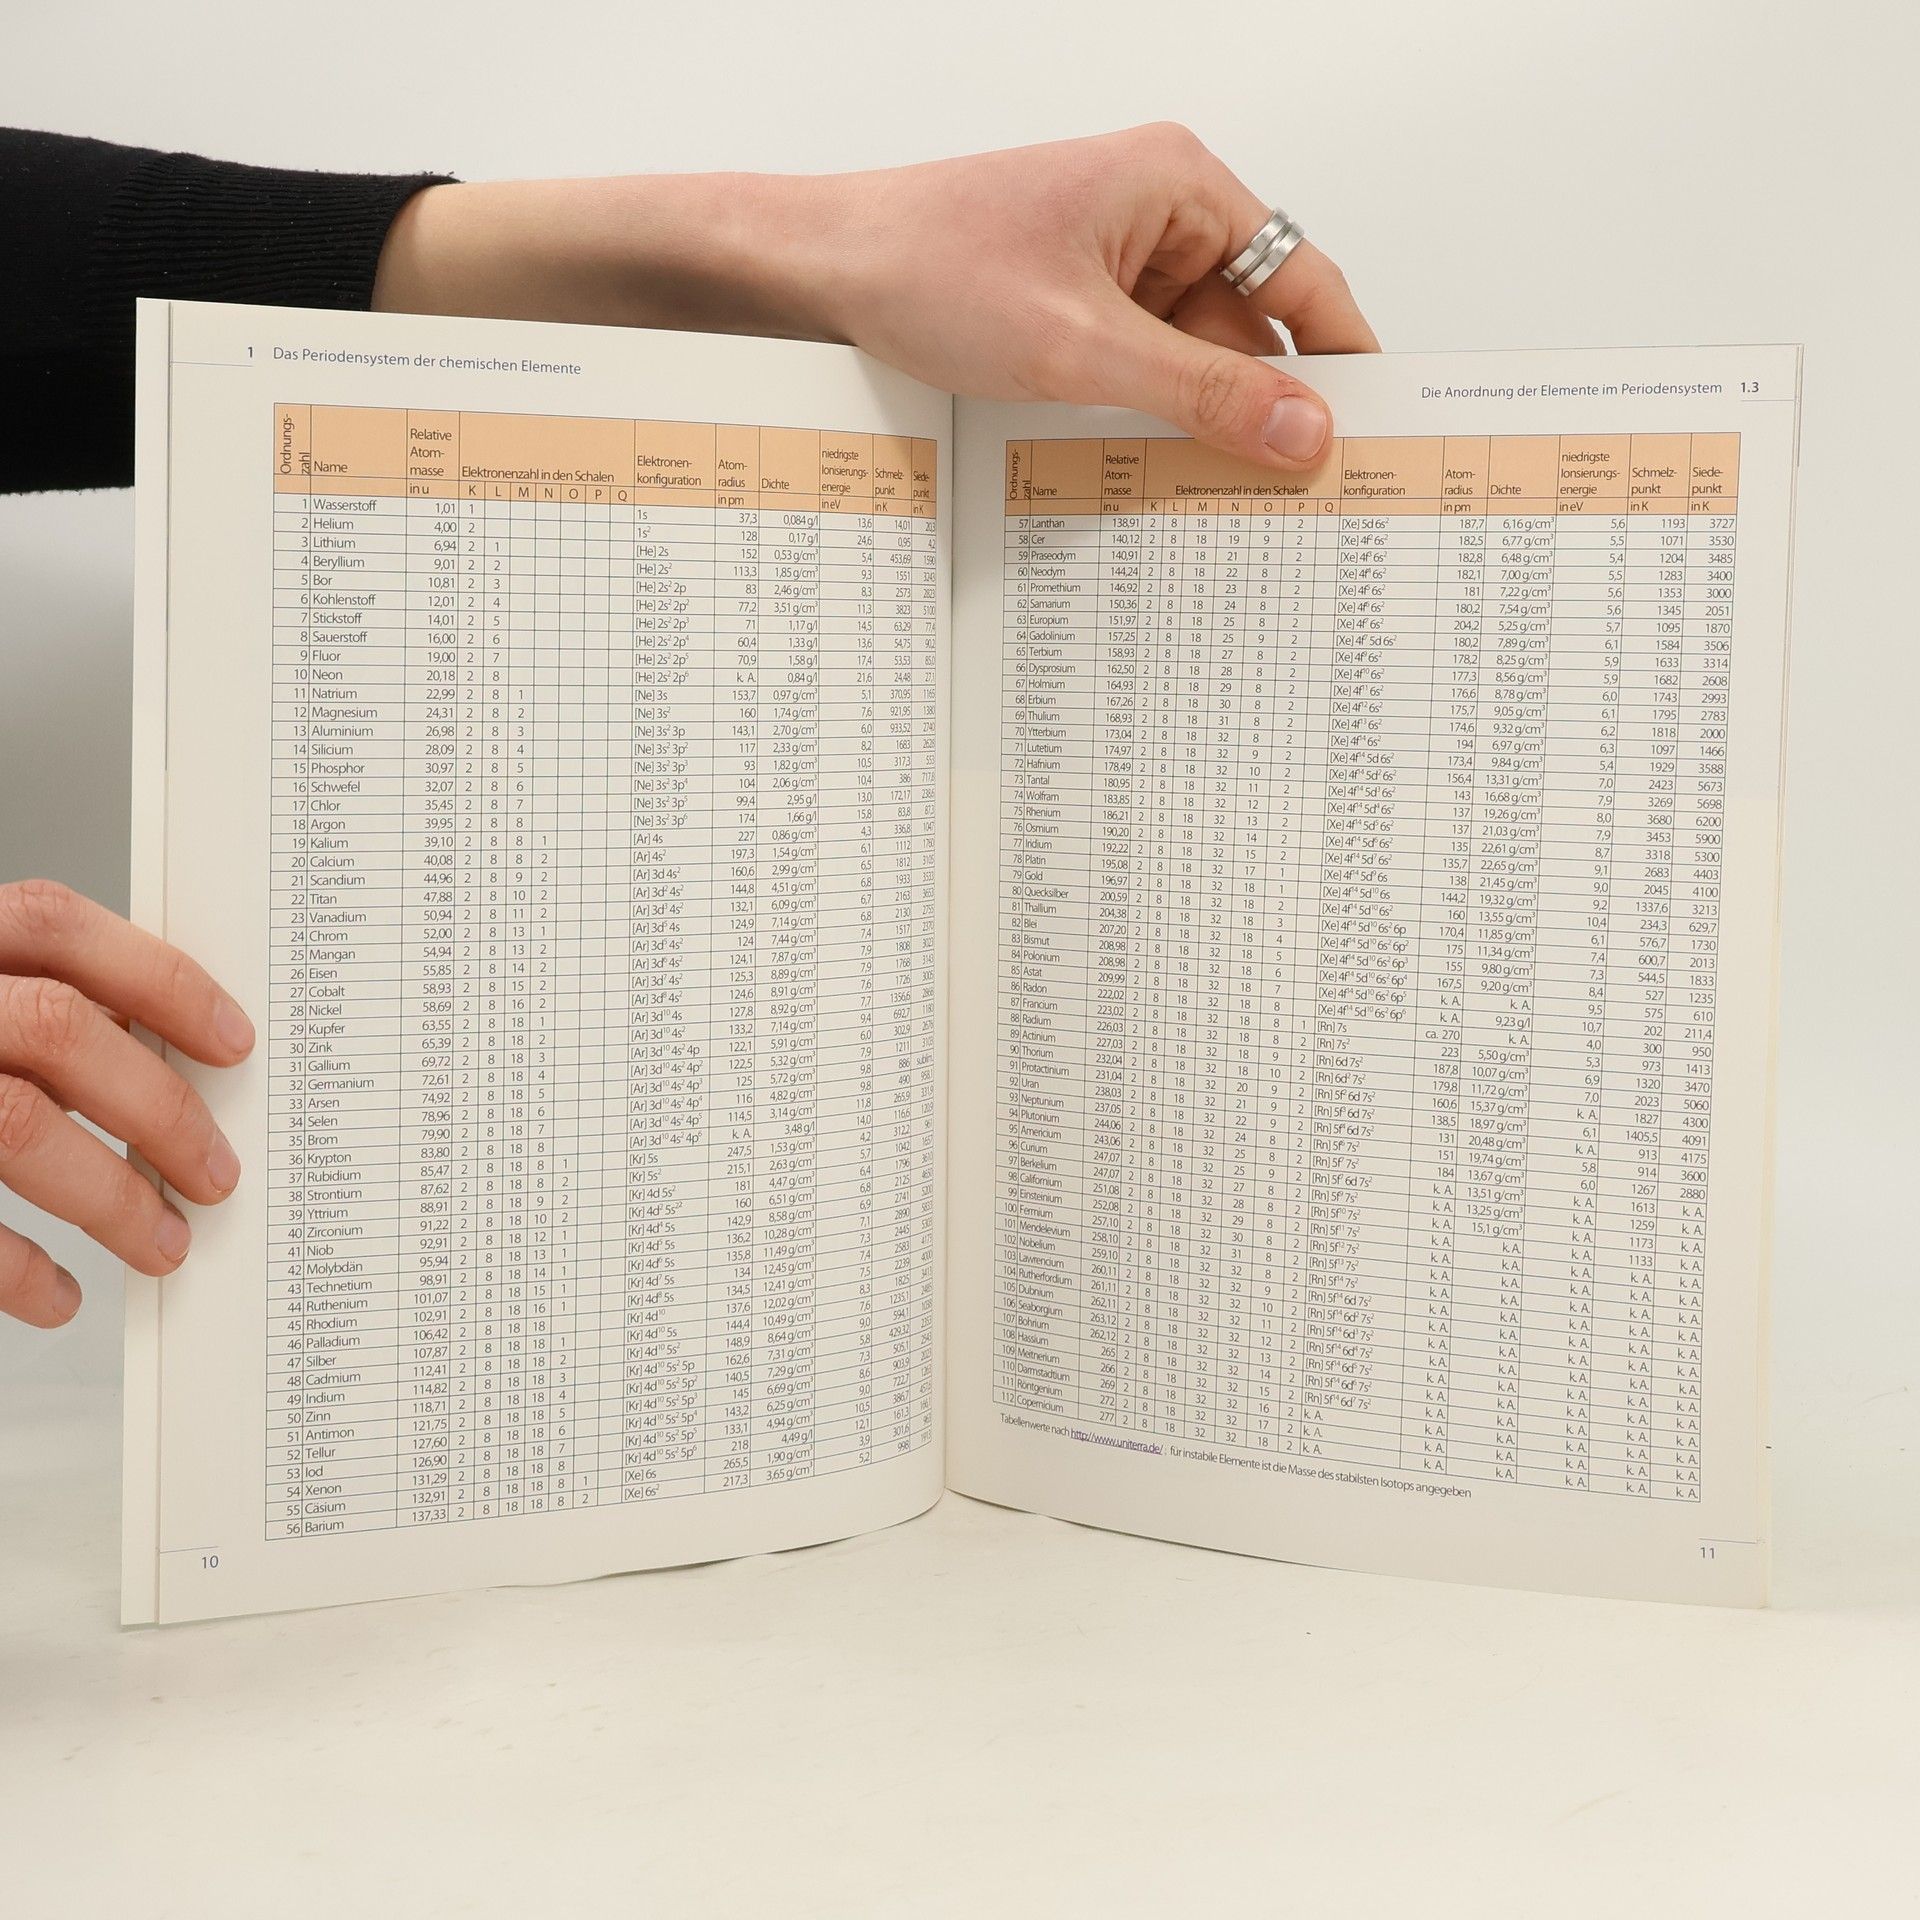 1 Das Periodensystem der chemischen Elemente
Ordnungs-zahl Name Relative Atom-masse in u Elektronenzahl in den Schalen K L M N O P Q Elektronen-konfiguration Atom-radius in pm Dichte niedrigste Ionisierungs-energie in eV Schmelz-punkt in K Siede-punkt in K
1 Wasserstoff 1,01 1 1s 37,3 0,084 g/l 13,6 14,01 20,3
2 Helium 4,00 2 1s² 128 0,17 g/l 24,6 0,95 4,2
3 Lithium 6,94 2 1 [He] 2s 152 0,53 g/cm³ 5,4 453,69 1590
4 Beryllium 9,01 2 2 [He] 2s² 113,3 1,85 g/cm³ 9,3 1551 3243
5 Bor 10,81 2 3 [He] 2s² 2p 83 2,46 g/cm³ 8,3 2573 2823
6 Kohlenstoff 12,01 2 4 [He] 2s² 2p² 77,2 3,51 g/cm³ 11,3 3823 5100
7 Stickstoff 14,01 2 5 [He] 2s² 2p³ 71 1,17 g/l 14,5 63,29 77,4
8 Sauerstoff 16,00 2 6 [He] 2s² 2p⁴ 60,4 1,33 g/l 13,6 54,75 90,2
9 Fluor 19,00 2 7 [He] 2s² 2p⁵ 70,9 1,58 g/l 17,4 53,53 85,0
10 Neon 20,18 2 8 [He] 2s² 2p⁶ k. A. 0,84 g/l 21,6 24,48 27,1
11 Natrium 22,99 2 8 1 [Ne] 3s 153,7 0,97 g/cm³ 5,1 370,95 1165
12 Magnesium 24,31 2 8 2 [Ne] 3s² 160 1,74 g/cm³ 7,6 921,95 1380
13 Aluminium 26,98 2 8 3 [Ne] 3s² 3p 143,1 2,70 g/cm³ 6,0 933,52 2740
14 Silicium 28,09 2 8 4 [Ne] 3s² 3p² 117 2,33 g/cm³ 8,2 1683 2628
15 Phosphor 30,97 2 8 5 [Ne] 3s² 3p³ 93 1,82 g/cm³ 10,5 317,3 553
16 Schwefel 32,07 2 8 6 [Ne] 3s² 3p⁴ 104 2,06 g/cm³ 10,4 386 717,8
17 Chlor 35,45 2 8 7 [Ne] 3s² 3p⁵ 99,4 2,95 g/l 13,0 172,17 238,6
18 Argon 39,95 2 8 8 [Ne] 3s² 3p⁶ 174 1,66 g/l 15,8 83,8 87,3
19 Kalium 39,10 2 8 8 1 [Ar] 4s 227 0,86 g/cm³ 4,3 336,8 1047
20 Calcium 40,08 2 8 8 2 [Ar] 4s² 197,3 1,54 g/cm³ 6,1 1112 1760
21 Scandium 44,96 2 8 9 2 [Ar] 3d 4s² 160,6 2,99 g/cm³ 6,5 1812 3105
22 Titan 47,88 2 8 10 2 [Ar] 3d² 4s² 144,8 4,51 g/cm³ 6,8 1933
23 Vanadium 50,94 2 8 11 2 [Ar] 3d³ 4s² 132,1 6,09 g/cm³ 6,7 2163
24 Chrom 52,00 2 8 13 1 [Ar] 3d⁵ 4s 124,9 7,14 g/cm³ 6,8 2130
25 Mangan 54,94 2 8 13 2 [Ar] 3d⁵ 4s² 124 7,44 g/cm³ 7,4 1517
26 Eisen 55,85 2 8 14 2 [Ar] 3d⁶ 4s² 124,1 7,87 g/cm³ 7,9 1808
27 Cobalt 58,93 2 8 15 2 [Ar] 3d⁷ 4s² 125,3 8,89 g/cm³ 7,9 1768
28 Nickel 58,69 2 8 16 2 [Ar] 3d⁸ 4s² 124,6 8,91 g/cm³ 7,6 1726
29 Kupfer 63,55 2 8 18 1 [Ar] 3d¹⁰ 4s 127,8 8,92 g/cm³ 7,7 1356,6
30 Zink 65,39 2 8 18 2 [Ar] 3d¹⁰ 4s² 133,2 7,14 g/cm³ 9,4 692,7
31 Gallium 69,72 2 8 18 3 [Ar] 3d¹⁰ 4s² 4p 122,1 5,91 g/cm³ 6,0 302,9
32 Germanium 72,61 2 8 18 4 [Ar] 3d¹⁰ 4s² 4p² 122,5 5,32 g/cm³ 7,9 1211
33 Arsen 74,92 2 8 18 5 [Ar] 3d¹⁰ 4s² 4p³ 125 5,72 g/cm³ 9,8 886 sublim.
34 Selen 78,96 2 8 18 6 [Ar] 3d¹⁰ 4s² 4p⁴ 116 4,82 g/cm³ 9,8 490
35 Brom 79,90 2 8 18 7 [Ar] 3d¹⁰ 4s² 4p⁵ 114,5 3,14 g/cm³ 11,8 265,9
36 Krypton 83,80 2 8 18 8 [Ar] 3d¹⁰ 4s² 4p⁶ k. A. 3,48 g/l 14,0 116,6
37 Rubidium 85,47 2 8 18 8 1 [Kr] 5s 247,5 1,53 g/cm³ 4,2 312,2
38 Strontium 87,62 2 8 18 8 2 [Kr] 5s² 215,1 2,63 g/cm³ 5,7 1042
39 Yttrium 88,91 2 8 18 9 2 [Kr] 4d 5s² 181 4,47 g/cm³ 6,4 1796
40 Zirconium 91,22 2 8 18 10 2 [Kr] 4d² 5s²² 160 6,51 g/cm³ 6,8 2125
41 Niob 92,91 2 8 18 12 1 [Kr] 4d⁴ 5s 142,9 8,58 g/cm³ 6,9 2741
42 Molybdän 95,94 2 8 18 13 1 [Kr] 4d⁵ 5s 136,2 10,28 g/cm³ 7,1 2890
43 Technetium 98,91 2 8 18 14 1 [Kr] 4d⁶ 5s 135,8 11,49 g/cm³ 7,3 2445
44 Ruthenium 101,07 2 8 18 15 1 [Kr] 4d⁷ 5s 134 12,45 g/cm³ 7,4 2583
45 Rhodium 102,91 2 8 18 16 1 [Kr] 4d⁸ 5s 134,5 12,41 g/cm³ 7,5 2239
46 Palladium 106,42 2 8 18 18 [Kr] 4d¹⁰ 137,6 12,02 g/cm³ 8,3 1825
47 Silber 107,87 2 8 18 18 1 [Kr] 4d¹⁰ 5s 144,4 10,49 g/cm³ 7,6 1235,1
48 Cadmium 112,41 2 8 18 18 2 [Kr] 4d¹⁰ 5s² 148,9 8,64 g/cm³ 9,0 594,1
49 Indium 114,82 2 8 18 18 3 [Kr] 4d¹⁰ 5s² 5p 162,6 7,31 g/cm³ 5,8 429,32
50 Zinn 118,71 2 8 18 18 4 [Kr] 4d¹⁰ 5s² 5p² 140,5 7,29 g/cm³ 7,3 505,1
51 Antimon 121,75 2 8 18 18 5 [Kr] 4d¹⁰ 5s² 5p³ 145 6,69 g/cm³ 8,6 903,9
52 Tellur 127,60 2 8 18 18 6 [Kr] 4d¹⁰ 5s² 5p⁴ 143,2 6,25 g/cm³ 9,0 722,7
53 Iod 126,90 2 8 18 18 7 [Kr] 4d¹⁰ 5s² 5p⁵ 133,1 4,94 g/cm³ 10,5 386,7
54 Xenon 131,29 2 8 18 18 8 [Kr] 4d¹⁰ 5s² 5p⁶ 218 4,49 g/l 12,1 161,3
55 Cäsium 132,91 2 8 18 18 8 1 [Xe] 6s 265,5 1,90 g/cm³ 3,9 301,6
56 Barium 137,33 2 8 18 18 8 2 [Xe] 6s² 217,3 3,65 g/cm³ 5,2 998
10
Die Anordnung der Elemente im Periodensystem 1.3
Ordnungs-zahl Name Relative Atom-masse in u Elektronenzahl in den Schalen K L M N O P Q Elektronen-konfiguration Atom-radius in pm Dichte niedrigste Ionsierungs-energie in eV Schmelz-punkt in K Siede-punkt in K
57 Lanthan 138,91 2 8 18 18 9 2 [Xe] 5d 6s² 187,7 6,16 g/cm³ 5,6 1193 3727
58 Cer 140,12 2 8 18 19 9 2 [Xe] 4f² 6s² 182,5 6,77 g/cm³ 5,5 1071 3530
59 Praseodym 140,91 2 8 18 21 8 2 [Xe] 4f³ 6s² 182,8 6,48 g/cm³ 5,4 1204 3485
60 Neodym 144,24 2 8 18 22 8 2 [Xe] 4f⁴ 6s² 182,1 7,00 g/cm³ 5,5 1283 3400
61 Promethium 146,92 2 8 18 23 8 2 [Xe] 4f⁵ 6s² 181 7,22 g/cm³ 5,6 1353 3000
62 Samarium 150,36 2 8 18 24 8 2 [Xe] 4f⁶ 6s² 180,2 7,54 g/cm³ 5,6 1345 2051
63 Europium 151,97 2 8 18 25 8 2 [Xe] 4f⁷ 6s² 204,2 5,25 g/cm³ 5,7 1095 1870
64 Gadolinium 157,25 2 8 18 25 9 2 [Xe] 4f⁷ 5d 6s² 180,2 7,89 g/cm³ 6,1 1584 3506
65 Terbium 158,93 2 8 18 27 8 2 [Xe] 4f⁹ 6s² 178,2 8,25 g/cm³ 5,9 1633 3314
66 Dysprosium 162,50 2 8 18 28 8 2 [Xe] 4f¹⁰ 6s² 177,3 8,56 g/cm³ 5,9 1682 2608
67 Holmium 164,93 2 8 18 29 8 2 [Xe] 4f¹¹ 6s² 176,6 8,78 g/cm³ 6,0 1743 2993
68 Erbium 167,26 2 8 18 30 8 2 [Xe] 4f¹² 6s² 175,7 9,05 g/cm³ 6,1 1795 2783
69 Thulium 168,93 2 8 18 31 8 2 [Xe] 4f¹³ 6s² 174,6 9,32 g/cm³ 6,2 1818 2000
70 Ytterbium 173,04 2 8 18 32 8 2 [Xe] 4f¹⁴ 6s² 194 6,97 g/cm³ 6,3 1097 1466
71 Lutetium 174,97 2 8 18 32 9 2 [Xe] 4f¹⁴ 5d 6s² 173,4 9,84 g/cm³ 5,4 1929 3588
72 Hafnium 178,49 2 8 18 32 10 2 [Xe] 4f¹⁴ 5d² 6s² 156,4 13,31 g/cm³ 7,0 2423 5673
73 Tantal 180,95 2 8 18 32 11 2 [Xe] 4f¹⁴ 5d³ 6s² 143 16,68 g/cm³ 7,9 3269 5698
74 Wolfram 183,85 2 8 18 32 12 2 [Xe] 4f¹⁴ 5d⁴ 6s² 137 19,26 g/cm³ 8,0 3680 6200
75 Rhenium 186,21 2 8 18 32 13 2 [Xe] 4f¹⁴ 5d⁵ 6s² 137 21,03 g/cm³ 7,9 3453 5900
76 Osmium 190,20 2 8 18 32 14 2 [Xe] 4f¹⁴ 5d⁶ 6s² 135 22,61 g/cm³ 8,7 3318 5300
77 Iridium 192,22 2 8 18 32 15 2 [Xe] 4f¹⁴ 5d⁷ 6s² 135,7 22,65 g/cm³ 9,1 2683 4403
78 Platin 195,08 2 8 18 32 17 1 [Xe] 4f¹⁴ 5d⁹ 6s 138 21,45 g/cm³ 9,0 2045 4100
79 Gold 196,97 2 8 18 32 18 1 [Xe] 4f¹⁴ 5d¹⁰ 6s 144,2 19,32 g/cm³ 9,2 1337,6 3213
80 Quecksilber 200,59 2 8 18 32 18 2 [Xe] 4f¹⁴ 5d¹⁰ 6s² 160 13,55 g/cm³ 10,4 234,3 629,7
81 Thallium 204,38 2 8 18 32 18 3 [Xe] 4f¹⁴ 5d¹⁰ 6s² 6p 170,4 11,85 g/cm³ 6,1 576,7 1730
82 Blei 207,20 2 8 18 32 18 4 [Xe] 4f¹⁴ 5d¹⁰ 6s² 6p² 175 11,34 g/cm³ 7,4 600,7 2013
83 Bismut 208,98 2 8 18 32 18 5 [Xe] 4f¹⁴ 5d¹⁰ 6s² 6p³ 155 9,80 g/cm³ 7,3 544,5 1833
84 Polonium 208,98 2 8 18 32 18 6 [Xe] 4f¹⁴ 5d¹⁰ 6s² 6p⁴ 167,5 9,20 g/cm³ 8,4 527 1235
85 Astat 209,99 2 8 18 32 18 7 [Xe] 4f¹⁴ 5d¹⁰ 6s² 6p⁵ k. A. k. A. 9,5 575 610
86 Radon 222,02 2 8 18 32 18 8 [Xe] 4f¹⁴ 5d¹⁰ 6s² 6p⁶ k. A. 9,23 g/l 10,7 202 211,4
87 Francium 223,02 2 8 18 32 18 8 1 [Rn] 7s ca. 270 k. A. 4,0 300 950
88 Radium 226,03 2 8 18 32 18 8 2 [Rn] 7s² 223 5,50 g/cm³ 5,3 973 1413
89 Actinium 227,03 2 8 18 32 18 9 2 [Rn] 6d 7s² 187,8 10,07 g/cm³ 6,9 1320 3470
90 Thorium 232,04 2 8 18 32 18 10 2 [Rn] 6d² 7s² 179,8 11,72 g/cm³ 7,0 2023 5060
91 Protactinium 231,04 2 8 18 32 20 9 2 [Rn] 5f² 6d 7s² 160,6 15,37 g/cm³ k. A. 1827 4300
92 Uran 238,03 2 8 18 32 21 9 2 [Rn] 5f³ 6d 7s² 138,5 18,97 g/cm³ 6,1 1405,5 4091
93 Neptunium 237,05 2 8 18 32 22 9 2 [Rn] 5f⁴ 6d 7s² 131 20,48 g/cm³ k. A. 913 4175
94 Plutonium 244,06 2 8 18 32 24 8 2 [Rn] 5f⁶ 7s² 151 19,74 g/cm³ 5,8 914 3600
95 Americium 243,06 2 8 18 32 25 8 2 [Rn] 5f⁷ 7s² 184 13,67 g/cm³ 6,0 1267 2880
96 Curium 247,07 2 8 18 32 25 9 2 [Rn] 5f⁷ 6d 7s² k. A. 13,51 g/cm³ k. A. 1613 k. A.
97 Berkelium 247,07 2 8 18 32 27 8 2 [Rn] 5f⁹ 7s² k. A. 13,25 g/cm³ k. A. 1259 k. A.
98 Californium 251,08 2 8 18 32 28 8 2 [Rn] 5f¹⁰ 7s² k. A. 15,1 g/cm³ k. A. 1173 k. A.
99 Einsteinium 252,08 2 8 18 32 29 8 2 [Rn] 5f¹¹ 7s² k. A. k. A. k. A. 1133 k. A.
100 Fermium 257,10 2 8 18 32 30 8 2 [Rn] 5f¹² 7s² k. A. k. A. k. A. k. A. k. A.
101 Mendelevium 258,10 2 8 18 32 31 8 2 [Rn] 5f¹³ 7s² k. A. k. A. k. A. k. A. k. A.
102 Nobelium 259,10 2 8 18 32 32 8 2 [Rn] 5f¹⁴ 7s² k. A. k. A. k. A. k. A. k. A.
103 Lawrencium 260,11 2 8 18 32 32 9 2 [Rn] 5f¹⁴ 6d 7s² k. A. k. A. k. A. k. A. k. A.
104 Rutherfordium 261,11 2 8 18 32 32 10 2 [Rn] 5f¹⁴ 6d² 7s² k. A. k. A. k. A. k. A. k. A.
105 Dubnium 262,11 2 8 18 32 32 11 2 [Rn] 5f¹⁴ 6d³ 7s² k. A. k. A. k. A. k. A. k. A.
106 Seaborgium 263,12 2 8 18 32 32 12 2 [Rn] 5f¹⁴ 6d⁴ 7s² k. A. k. A. k. A. k. A. k. A.
107 Bohrium 262,12 2 8 18 32 32 13 2 [Rn] 5f¹⁴ 6d⁵ 7s² k. A. k. A. k. A. k. A. k. A.
108 Hassium 265 2 8 18 32 32 14 2 [Rn] 5f¹⁴ 6d⁶ 7s² k. A. k. A. k. A. k. A. k. A.
109 Meitnerium 266 2 8 18 32 32 15 2 [Rn] 5f¹⁴ 6d⁷ 7s² k. A. k. A. k. A. k. A. k. A.
110 Darmstadtium 269 2 8 18 32 32 16 2 k. A. k. A. k. A. k. A. k. A. k. A.
111 Röntgenium 272 2 8 18 32 32 17 2 k. A. k. A. k. A. k. A. k. A. k. A.
112 Copernicium 277 2 8 18 32 32 18 2 k. A. k. A. k. A. k. A. k. A. k. A.
Tabellenwerte nach http://www.uniterra.de/ ; für instabile Elemente ist die Masse des stabilsten Isotops angegeben
11